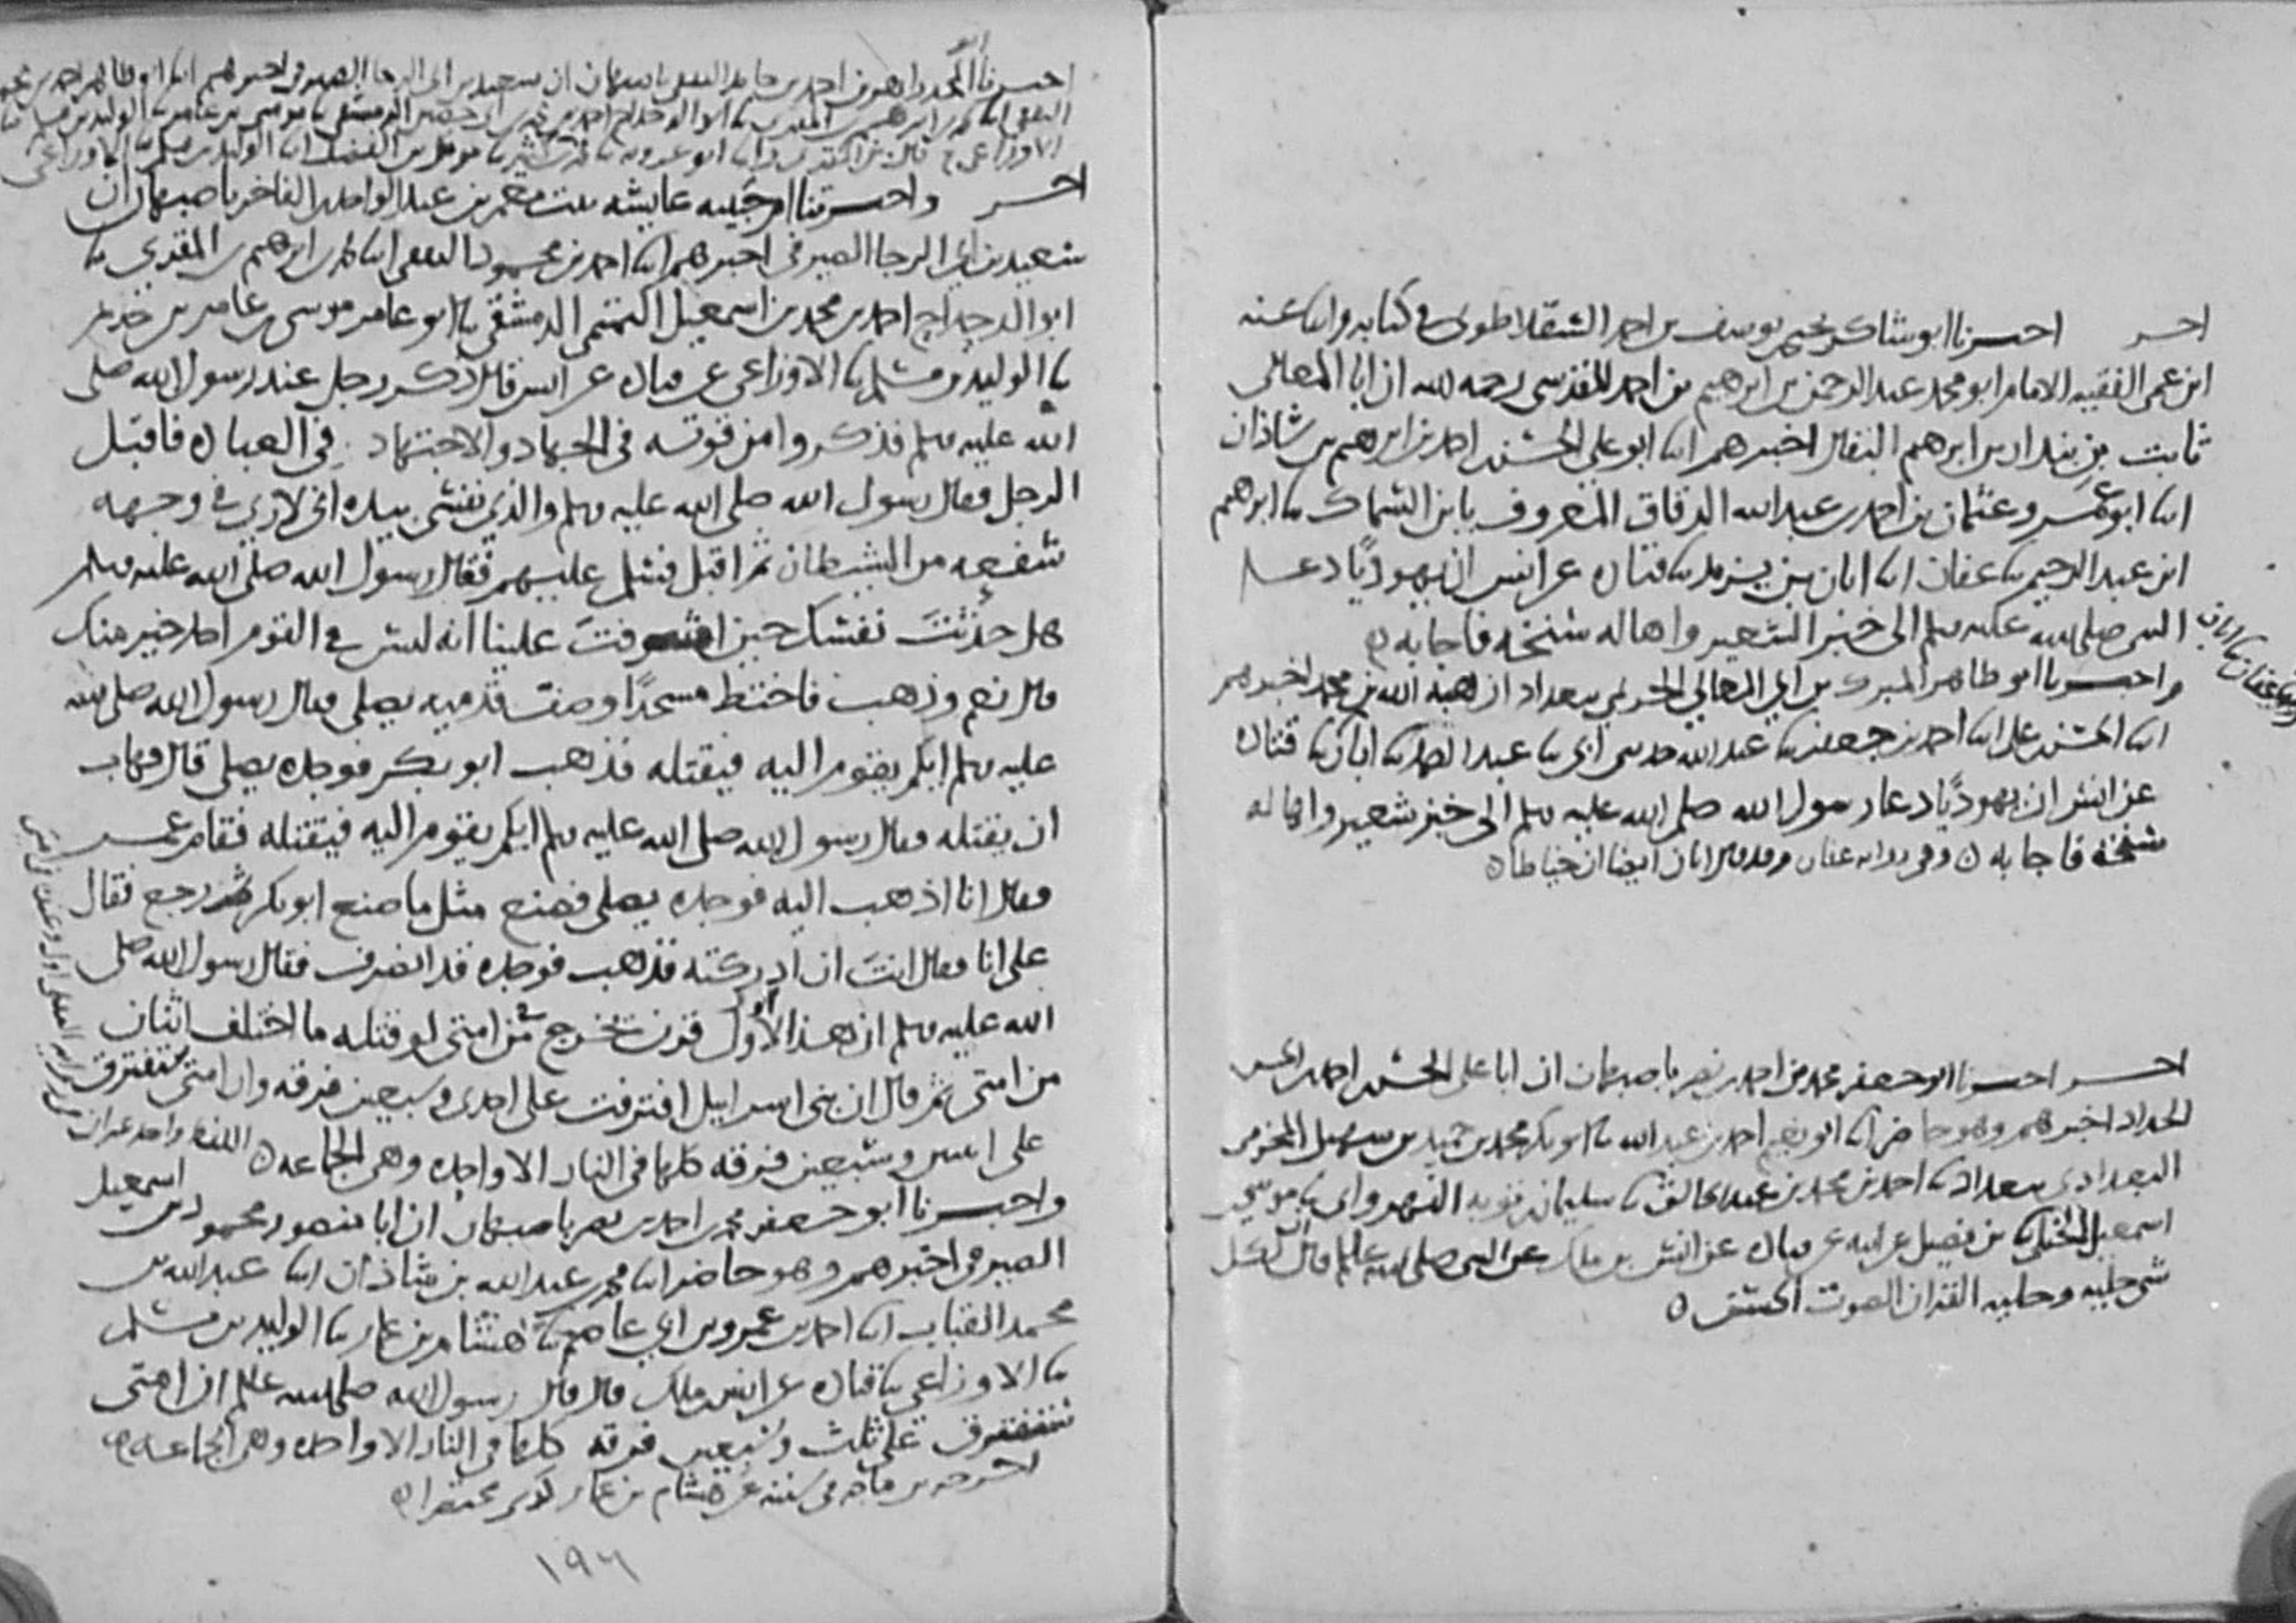 اخر احبرنا ابو شاكر يحيى بن يوسف بن احمد السقلاطوني في كتابه وابنا عنه
ابن عمي الفقيه الامام ابو محمد عبد الرحمن بن ابرهيم بن احمد المقدسي رحمه الله ان ابا المعالي
ثابت بن بندار بن ابرهيم البقال اخبرهم ابنا ابو علي الحسن بن احمد بن ابرهيم بن شاذان
ابنا ابو عمرو عثمان بن احمد بن عبد الله الدقاق المعروف بابن السماك ثنا ابرهيم
ابن عبد الرحيم ثنا عفان ابنا ابان بن يزيد ثنا قتاده عن انس ان يهوديا دعا
النبي صلى الله عليه وسلم الى خبز الشعير واهاله سنخه فاجابه
واحبرنا ابو طاهر المبارك بن ابي المعالي الحريمي ببغداد ان هبة الله بن محمد اخبرهم
ابنا الحسن بن علي ابنا احمد بن جعفر ثنا عبد الله حدثني ابي ثنا عبد الصمد ثنا ابان ثنا قتاده
عن انس ان يهوديا دعا رسول الله صلى الله عليه وسلم الى خبز شعير واهاله
سنخه فاجابه ٥ وفي روايه عفان وقد قال ابان ايضا ان خياطا ٥
اخر احبرنا ابو جعفر محمد بن احمد بن نصر باصبهان ان ابا علي الحسن بن احمد بن الحسن
الحداد اخبرهم وهو حاضر ابنا ابو نعيم احمد بن عبد الله ثنا ابو بكر محمد بن حميد بن سهيل المخرمي
البغدادي ببغداد ثنا احمد بن محمد بن عبد الخالق ثنا سليمان بن توبه النهرواني ثنا موسى
اسمعيل الختلي ثنا بن فضيل عن ابيه عن قتاده عن انس بن ملك عن النبي صلى الله عليه وسلم قال ان لكل
شي حليه وحليه القران الصوت الحسن ٥
اخر واحبرتنا ام حبيبه عايشه بنت معمر بن عبد الواحد بن الفاخر باصبهان ان
سعيد بن ابي الرجا الصيرفي اخبرهم ابنا احمد بن محمود الثقفي ابنا محمد بن ابرهيم بن المقري ثنا
ابو الدحداح احمد بن محمد بن اسمعيل التميمي الدمشقي ثنا ابو عامر موسى بن عامر بن خريم
ثنا الوليد بن مسلم ثنا الاوزاعي عن قتاده عن انس قال ذكر رجل عند رسول الله صلى
الله عليه وسلم فذكروا من قوته في الجهاد والاجتهاد في العباده فاقبل
الرجل فقال رسول الله صلى الله عليه وسلم والذي نفسي بيده اني لاري في وجهه
سفعه من الشيطان ثم اقبل فسلم عليهم فقال رسول الله صلى الله عليه وسلم
هل حدثت نفسك حين اشرفت علينا انه ليس في القوم احد خير منك
قال نعم وذهب فاختط مسجدا وصف قدميه يصلي فقال رسول الله صلى الله
عليه وسلم ايكم يقوم اليه فيقتله فذهب ابو بكر فوجده يصلي قال فهاب
ان يقتله فقال رسول الله صلى الله عليه وسلم ايكم يقوم اليه فيقتله فقام عمر
فقال انا اذهب اليه فوجده يصلي فصنع مثل ما صنع ابو بكر ثم رجع فقال
علي انا فقال انت ان ادركته فذهب فوجده قد انصرف فقال رسول الله صلى
الله عليه وسلم ان هذا لاول قرن يخرج من امتي لو قتله ما اختلف اثنان
من امتي ثم قال ان بني اسرايل افترقت على احدى وسبعين فرقه وان امتي ستفترق
على اثنين وسبعين فرقه كلها في النار الا واحده وهي الجماعه ٥ اللفظ واحد غير ان
واحبرنا ابو جعفر محمد بن احمد بن نصر باصبهان ان ابا منصور محمود بن اسمعيل
الصيرفي اخبرهم وهو حاضر ابنا محمد بن عبد الله بن شاذان ابنا عبد الله بن
محمد القباب ابنا احمد بن عمرو بن ابي عاصم ثنا هشام بن عمار ثنا الوليد بن مسلم
ثنا الاوزاعي ثنا قتاده عن انس بن ملك قال قال رسول الله صلى الله عليه وسلم ان امتي
ستفترق على ثلث وسبعين فرقه كلها في النار الا واحده وهي الجماعه
اخرجه بن ماجه في سننه عن هشام بن عمار مختصرا
١٩٦